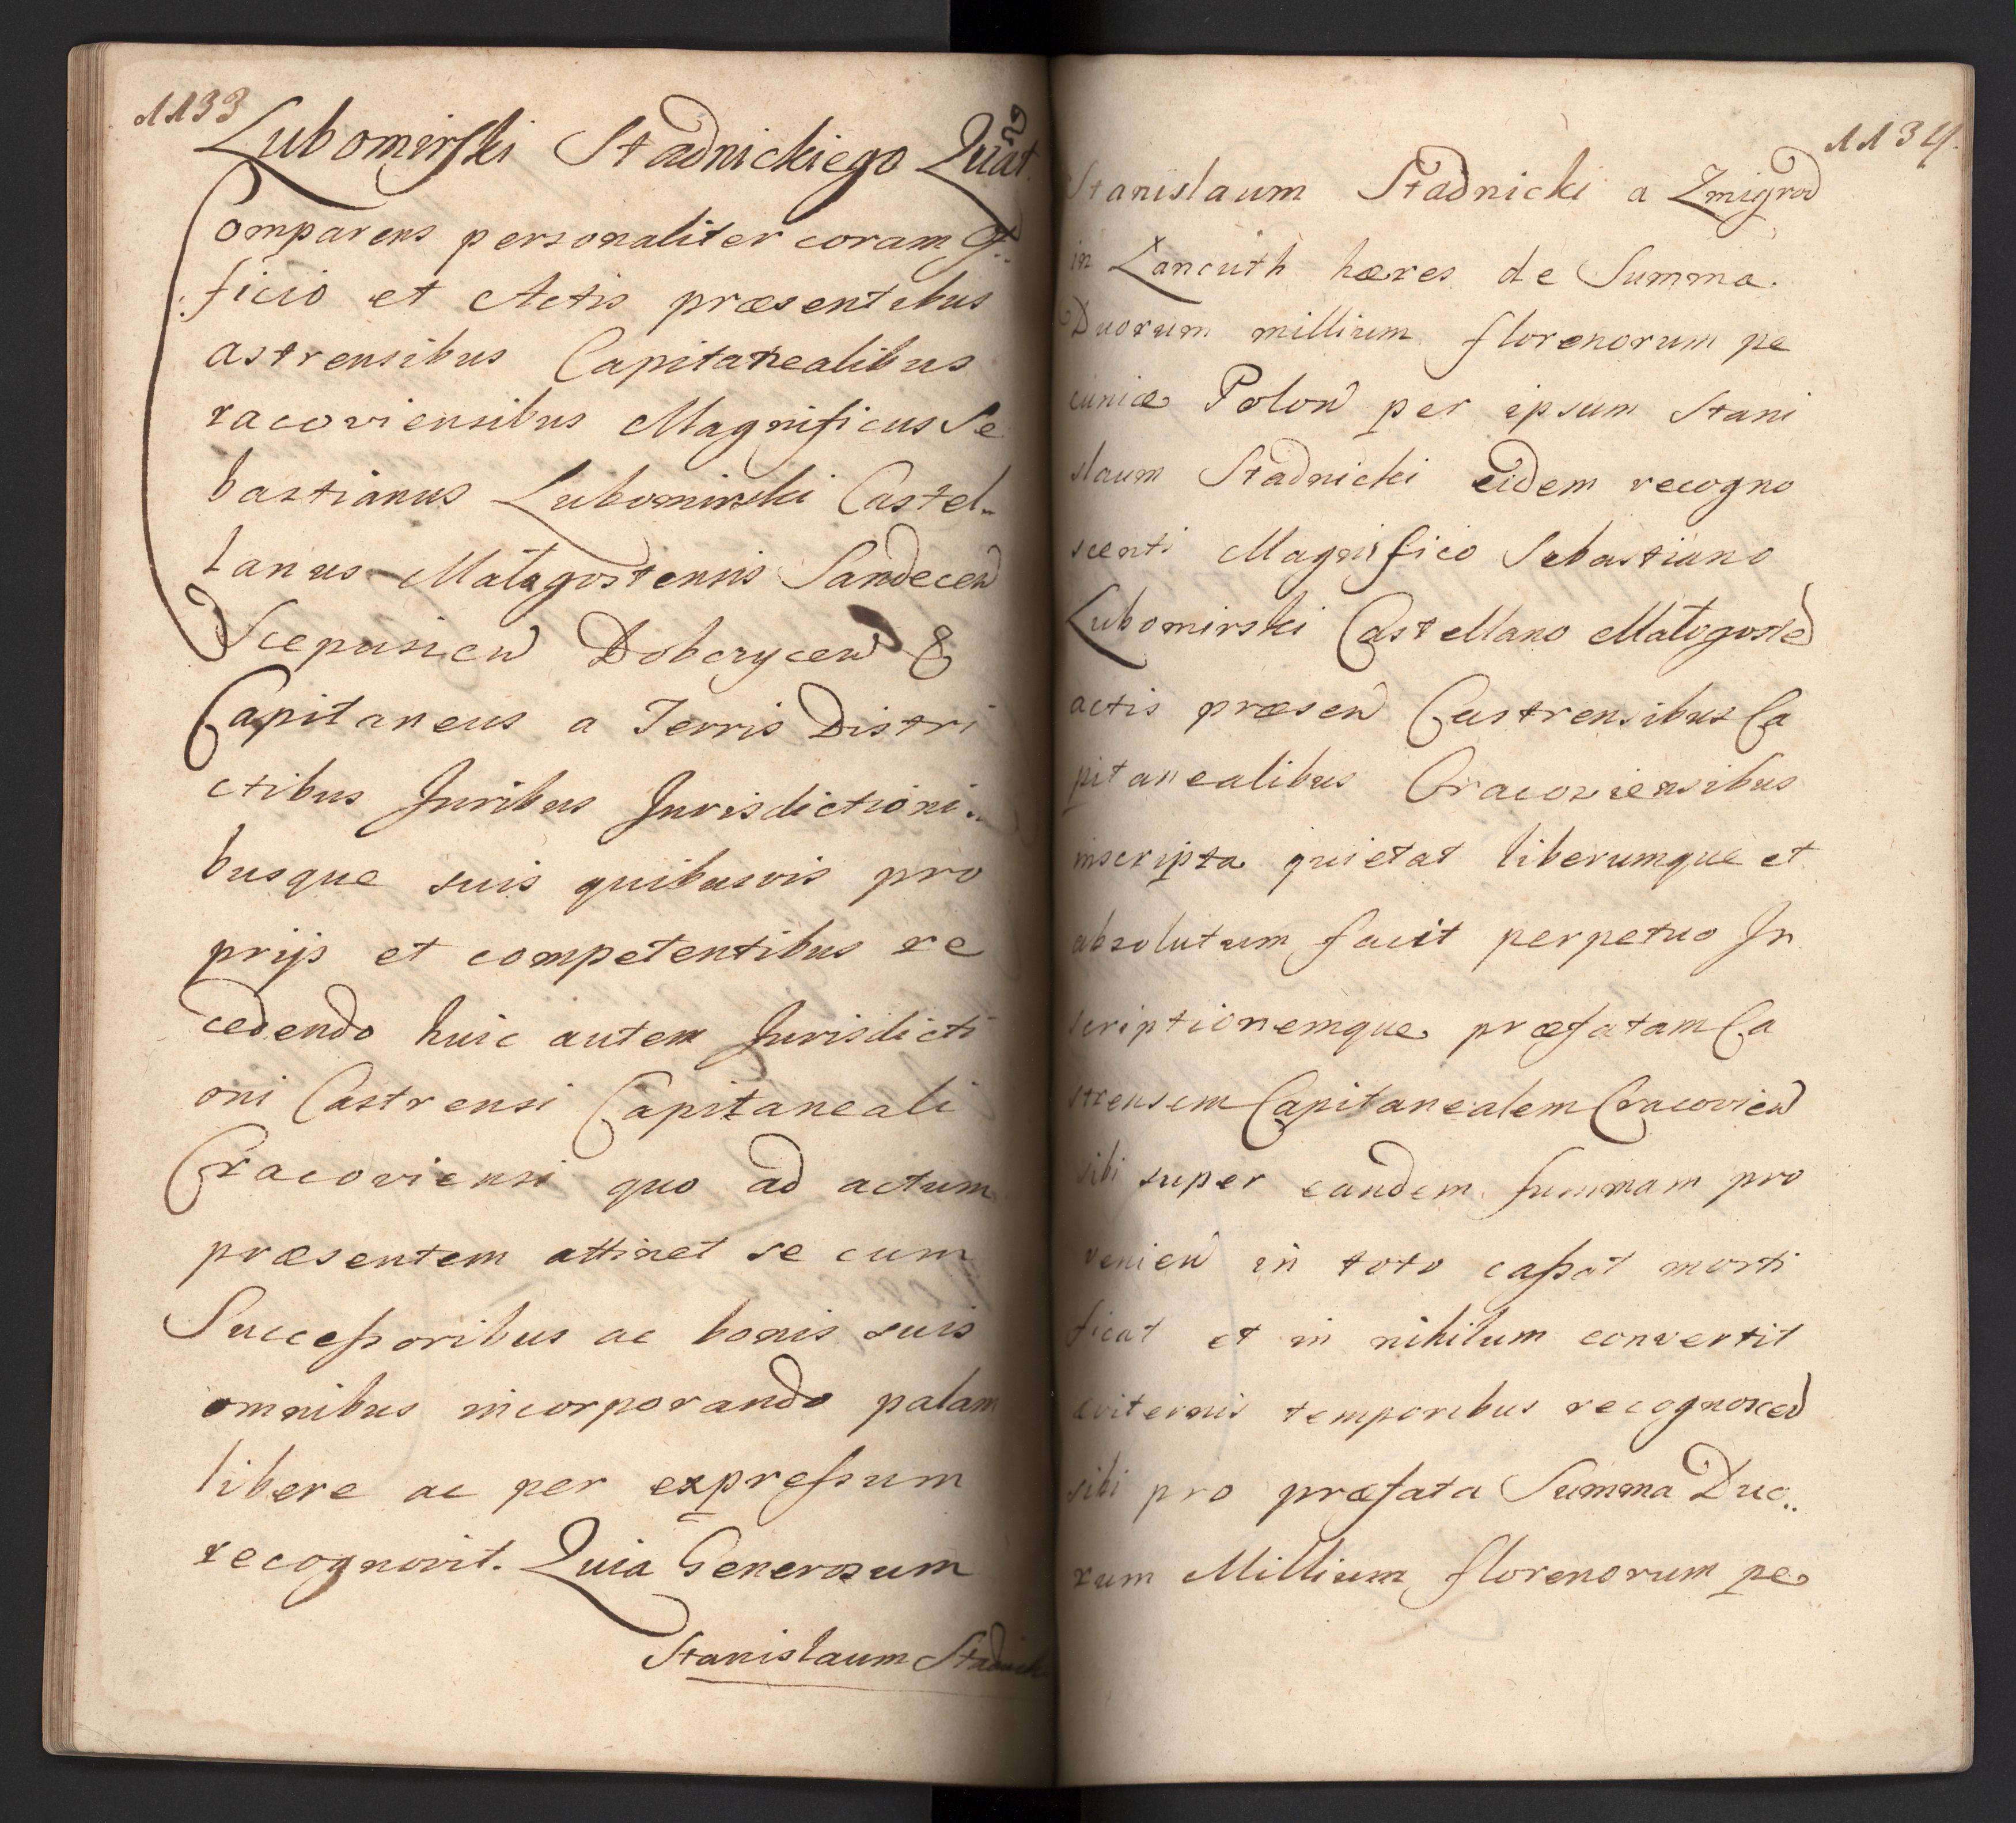 1133
Lubomirski Stadnickiego Quat.
Comparens personaliter coram Of..
ficio et Actis præsentibus
astrensibus Capitanealibus
racoviensibus Magnificus Se
bastianus Lubomirski Castel..
lanus Małagostensis Sandecen
Scepusien Dobczycen &
Capitaneus a Terris Distri
ctibus Juribus Jurisdictioni..
busque suis quibusvis pro
prijs et competentibus re
cedendo huic autem Jurisdicti
oni Castrensi Capitaneali
Cracoviensi quo ad actum
præsentem attinet se cum
Successoribus ac bonis suis
omnibus incorporando palam
libere ac per expressum
recognovit. Quia Generosum
Stanislaum Stadnick
1134.
Stanislaum Stadnicki a Zmigrod
in Lancuth hæres de Summa.
Duorum millium florenorum pe
cuniæ Polon per ipsum Stani
slaum Stadnicki eidem recogno
scenti Magnifico Sebastiano
Lubomirski Castellano Małogosted
actis præsen Castrensibus Ca
pitanealibus Cracoviensibus
inscripta quietat liberumque et
absolutum facit perpetuo In
scriptionemque præfatam Ca
strensem Capitanealem Cracovien
sibi super eandem summam pro
venien in toto cassat morti
ficat et in nihilum convertit
æviternis temporibus recognoscen
sibi pro præfata Summa Duo..
rum Millium florenorum pe